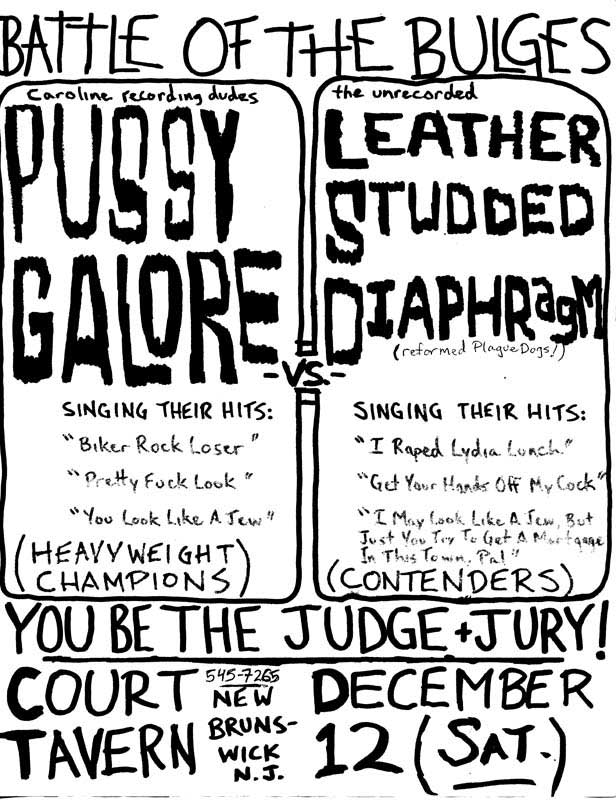 BATTLE OF THE BULGES
Caroline recording dudes
PUSSY
GALORE
SINGING THEIR HITS:
"Biker Rock Loser"
"Pretty Fuck Look"
"You Look Like A Jew"
(HEAVYWEIGHT
CHAMPIONS)
-VS.-
the unrecorded
LEATHER
STUDDED
DIAPHRagM
(reformed Plague Dogs!)
SINGING THEIR HITS:
"I Raped Lydia Lunch"
"Get Your Hands Off My Cock"
"I May Look Like A Jew, But
Just You Try To Get A Mortgage
In This Town, Pal"
(CONTENDERS)
YOU BE THE JUDGE + JURY!
COURT
TAVERN
545-7265
NEW
BRUNS-
WICK
N.J.
DECEMBER
12 (SAT.)